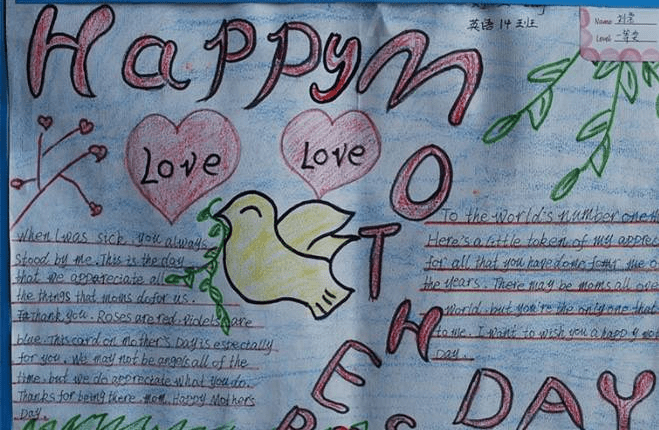 Happy MOTHER
英语14班
Name
Level 一等奖
Love
Love
When I was sick, you always
stood by me. This is the day
that we appareciate all
the things that moms do for us.
Thank you. Roses are red. violets are
blue. This card on Mother's Day is especially
for you. We may not be angels all of the
time. but we do appreciate what you do.
Thanks for being there mom. Happy Mothers
Day.
To the world's number one
Here's a little token of my apprec
for all that you have done for me o
the years. There may be moms all over
world. but you're the only one that
to me. I want to wish you a happy mo
Day.
DAY